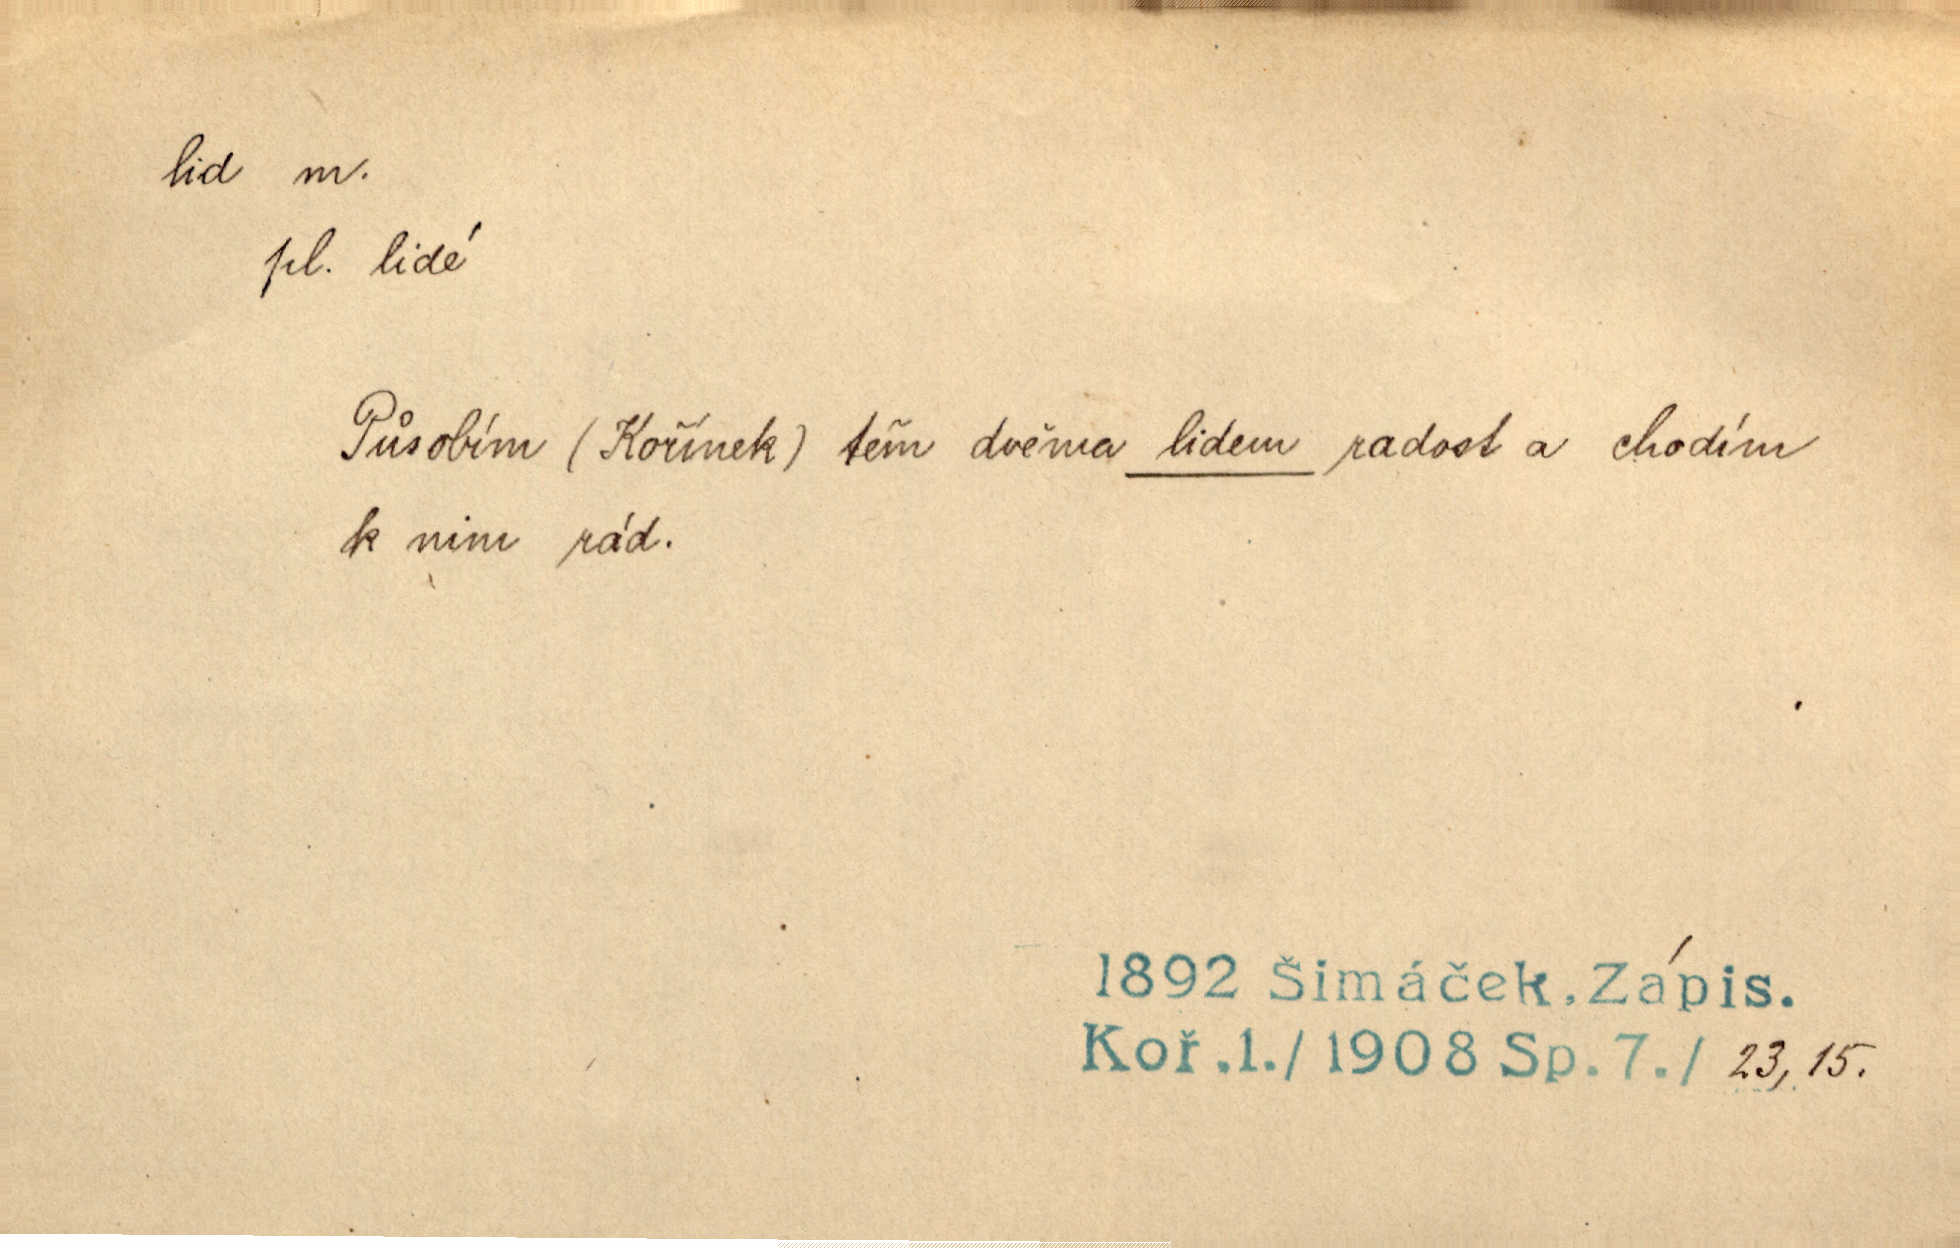 lid m.
pl. lidé
Působím (Kořínek) těm dvěma lidem radost a chodím
k nim rád.
1892 Šimáček, Zápis.
Koř.1./1908 Sp.7./ 23, 15.